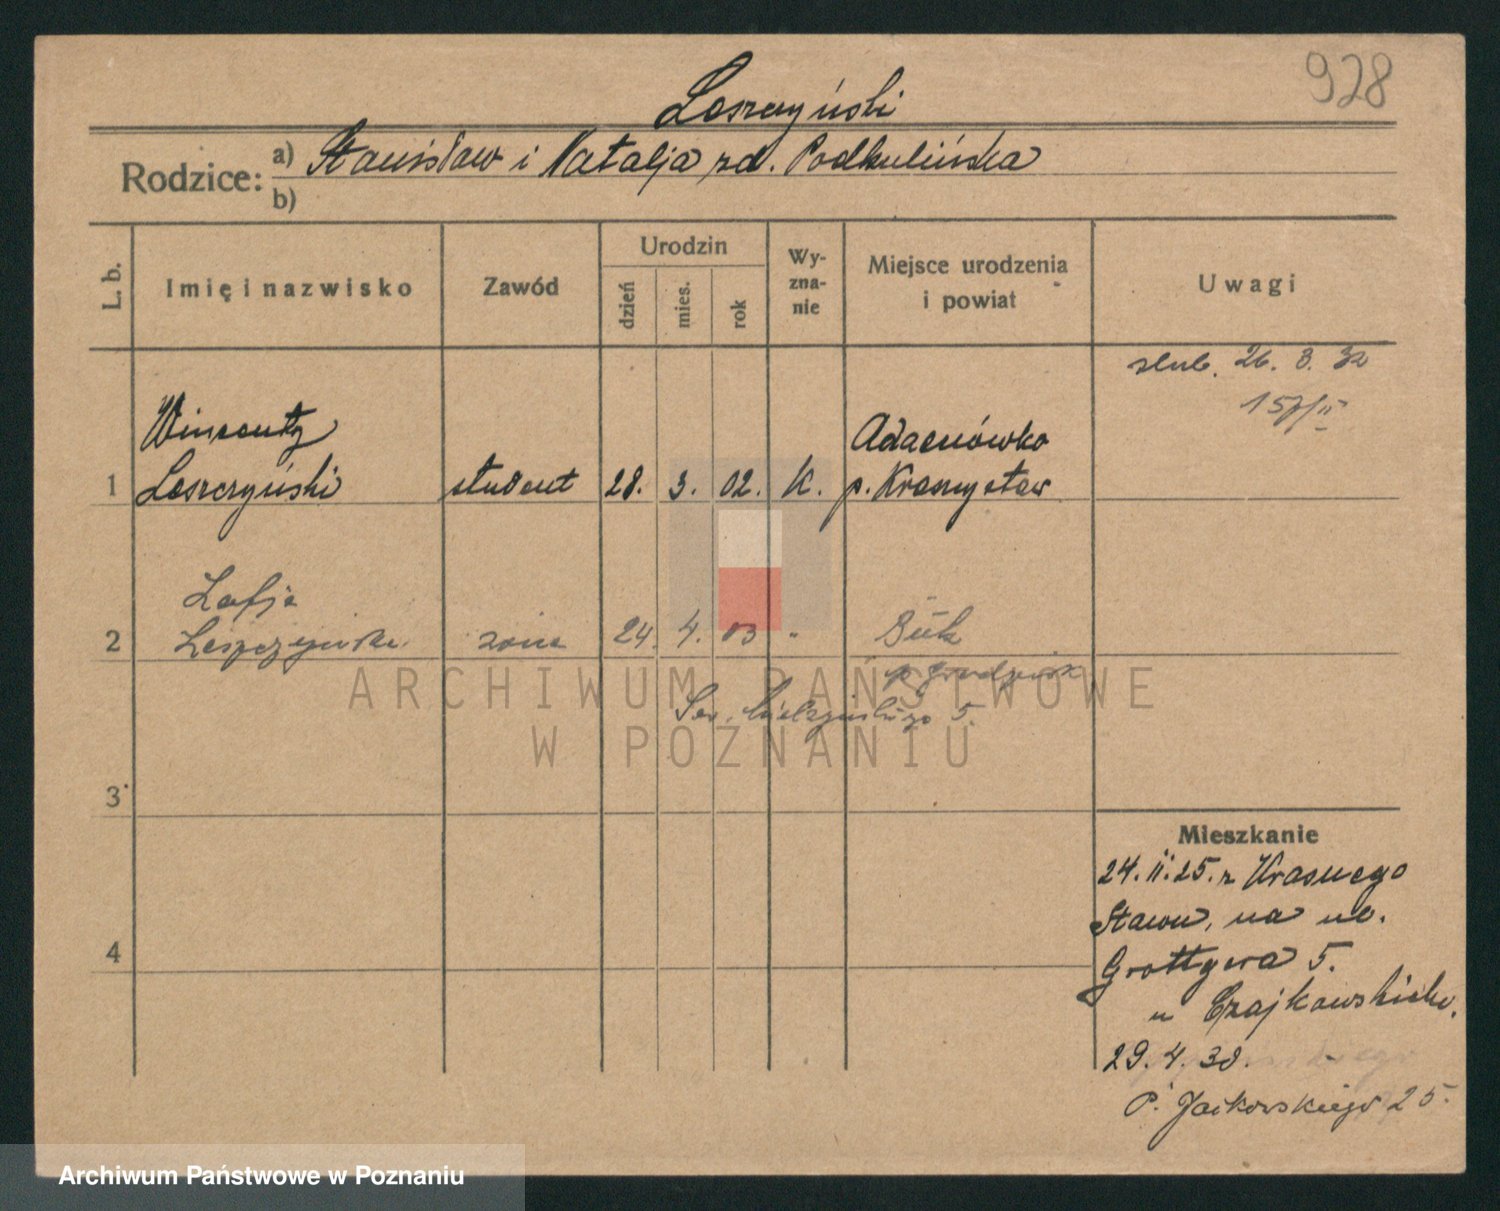 928
Leszczyński
Rodzice: a) Stanisław i Natalja zd. Podkulińska
b)
L. b. Imię i nazwisko Zawód Urodzin dzień mies. rok Wy-zna-nie Miejsce urodzenia i powiat Uwagi
ślub. 26. 8. 32
Wincenty Adamówka
1 Leszczyński student 28. 3. 02. K. p. Krasnystaw
Zofja
2 Leszczyńska żona 24. 4. 03 " Buk
p. Grodzisk
5.
ARCHIWUM PAŃSTWOWE
W POZNANIU
3
4
Mieszkanie
24. II. 25. z Krasnego
Stawu, na ul.
Grottgera 5.
u Czajkowskich.
29. 4. 38.
P. Jackowskiego 25.
Archiwum Państwowe w Poznaniu